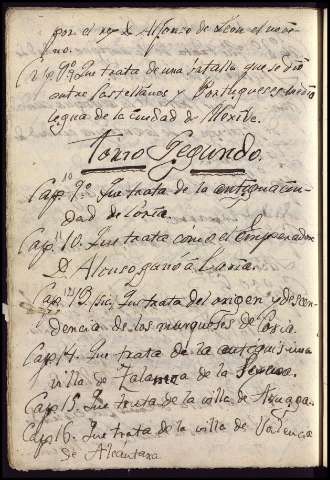 por el rey D. Alfonso de León el noveno.
Cap. 9º. Que trata de una batalla que se dió
entre Castellanos y Portugueses media
legua de la ciudad de
Tomo Segundo.
10
Cap. 9º. Que trata de la antigua ciudad de Coria.
11
Cap. 10. Que trata cómo el Emperador
D. Alonso ganó á Coria.
12
Cap. 13. (sic) Que trata del origen y descendencia
de los marqueses de Coria.
Cap. 14. Que trata de la antiquísima
villa de de la
Cap. 15. Que trata de la villa de Azuaga.
Cap. 16. Que trata de la villa de Valencia
de Alcántara